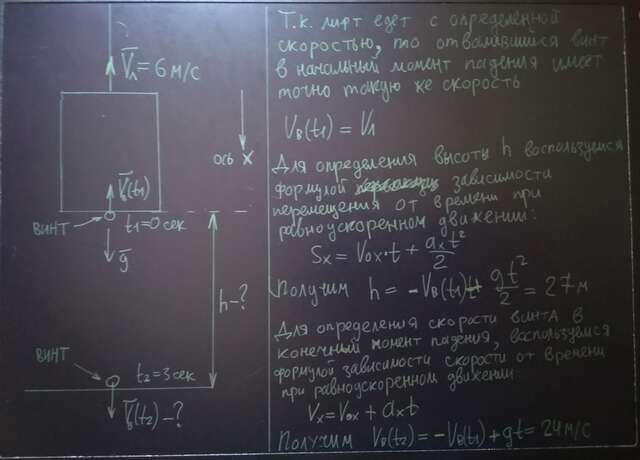 V̅л = 6 м/с
ось X
V̅в(t₁)
винт
t₁=0сек
g̅
h-?
винт
t₂=3сек
V̅в(t₂)-?
Т.к. лифт едет с определённой
скоростью, то отвалившийся винт
в начальный момент падения имеет
точно такую же скорость
Vв(t₁) = Vл
Для определения высоты h воспользуемся
формулой зависимости
перемещения от времени при
равноускоренном движении:
Sx = V₀x·t + axt²/2
Получим h = -Vв(t₁)t + gt²/2 = 27м
Для определения скорости винта в
конечный момент падения, воспользуемся
формулой зависимости скорости от времени
при равноускоренном движении:
Vx = V₀x + axt
Получим Vв(t₂) = -Vв(t₁) + gt = 24м/с